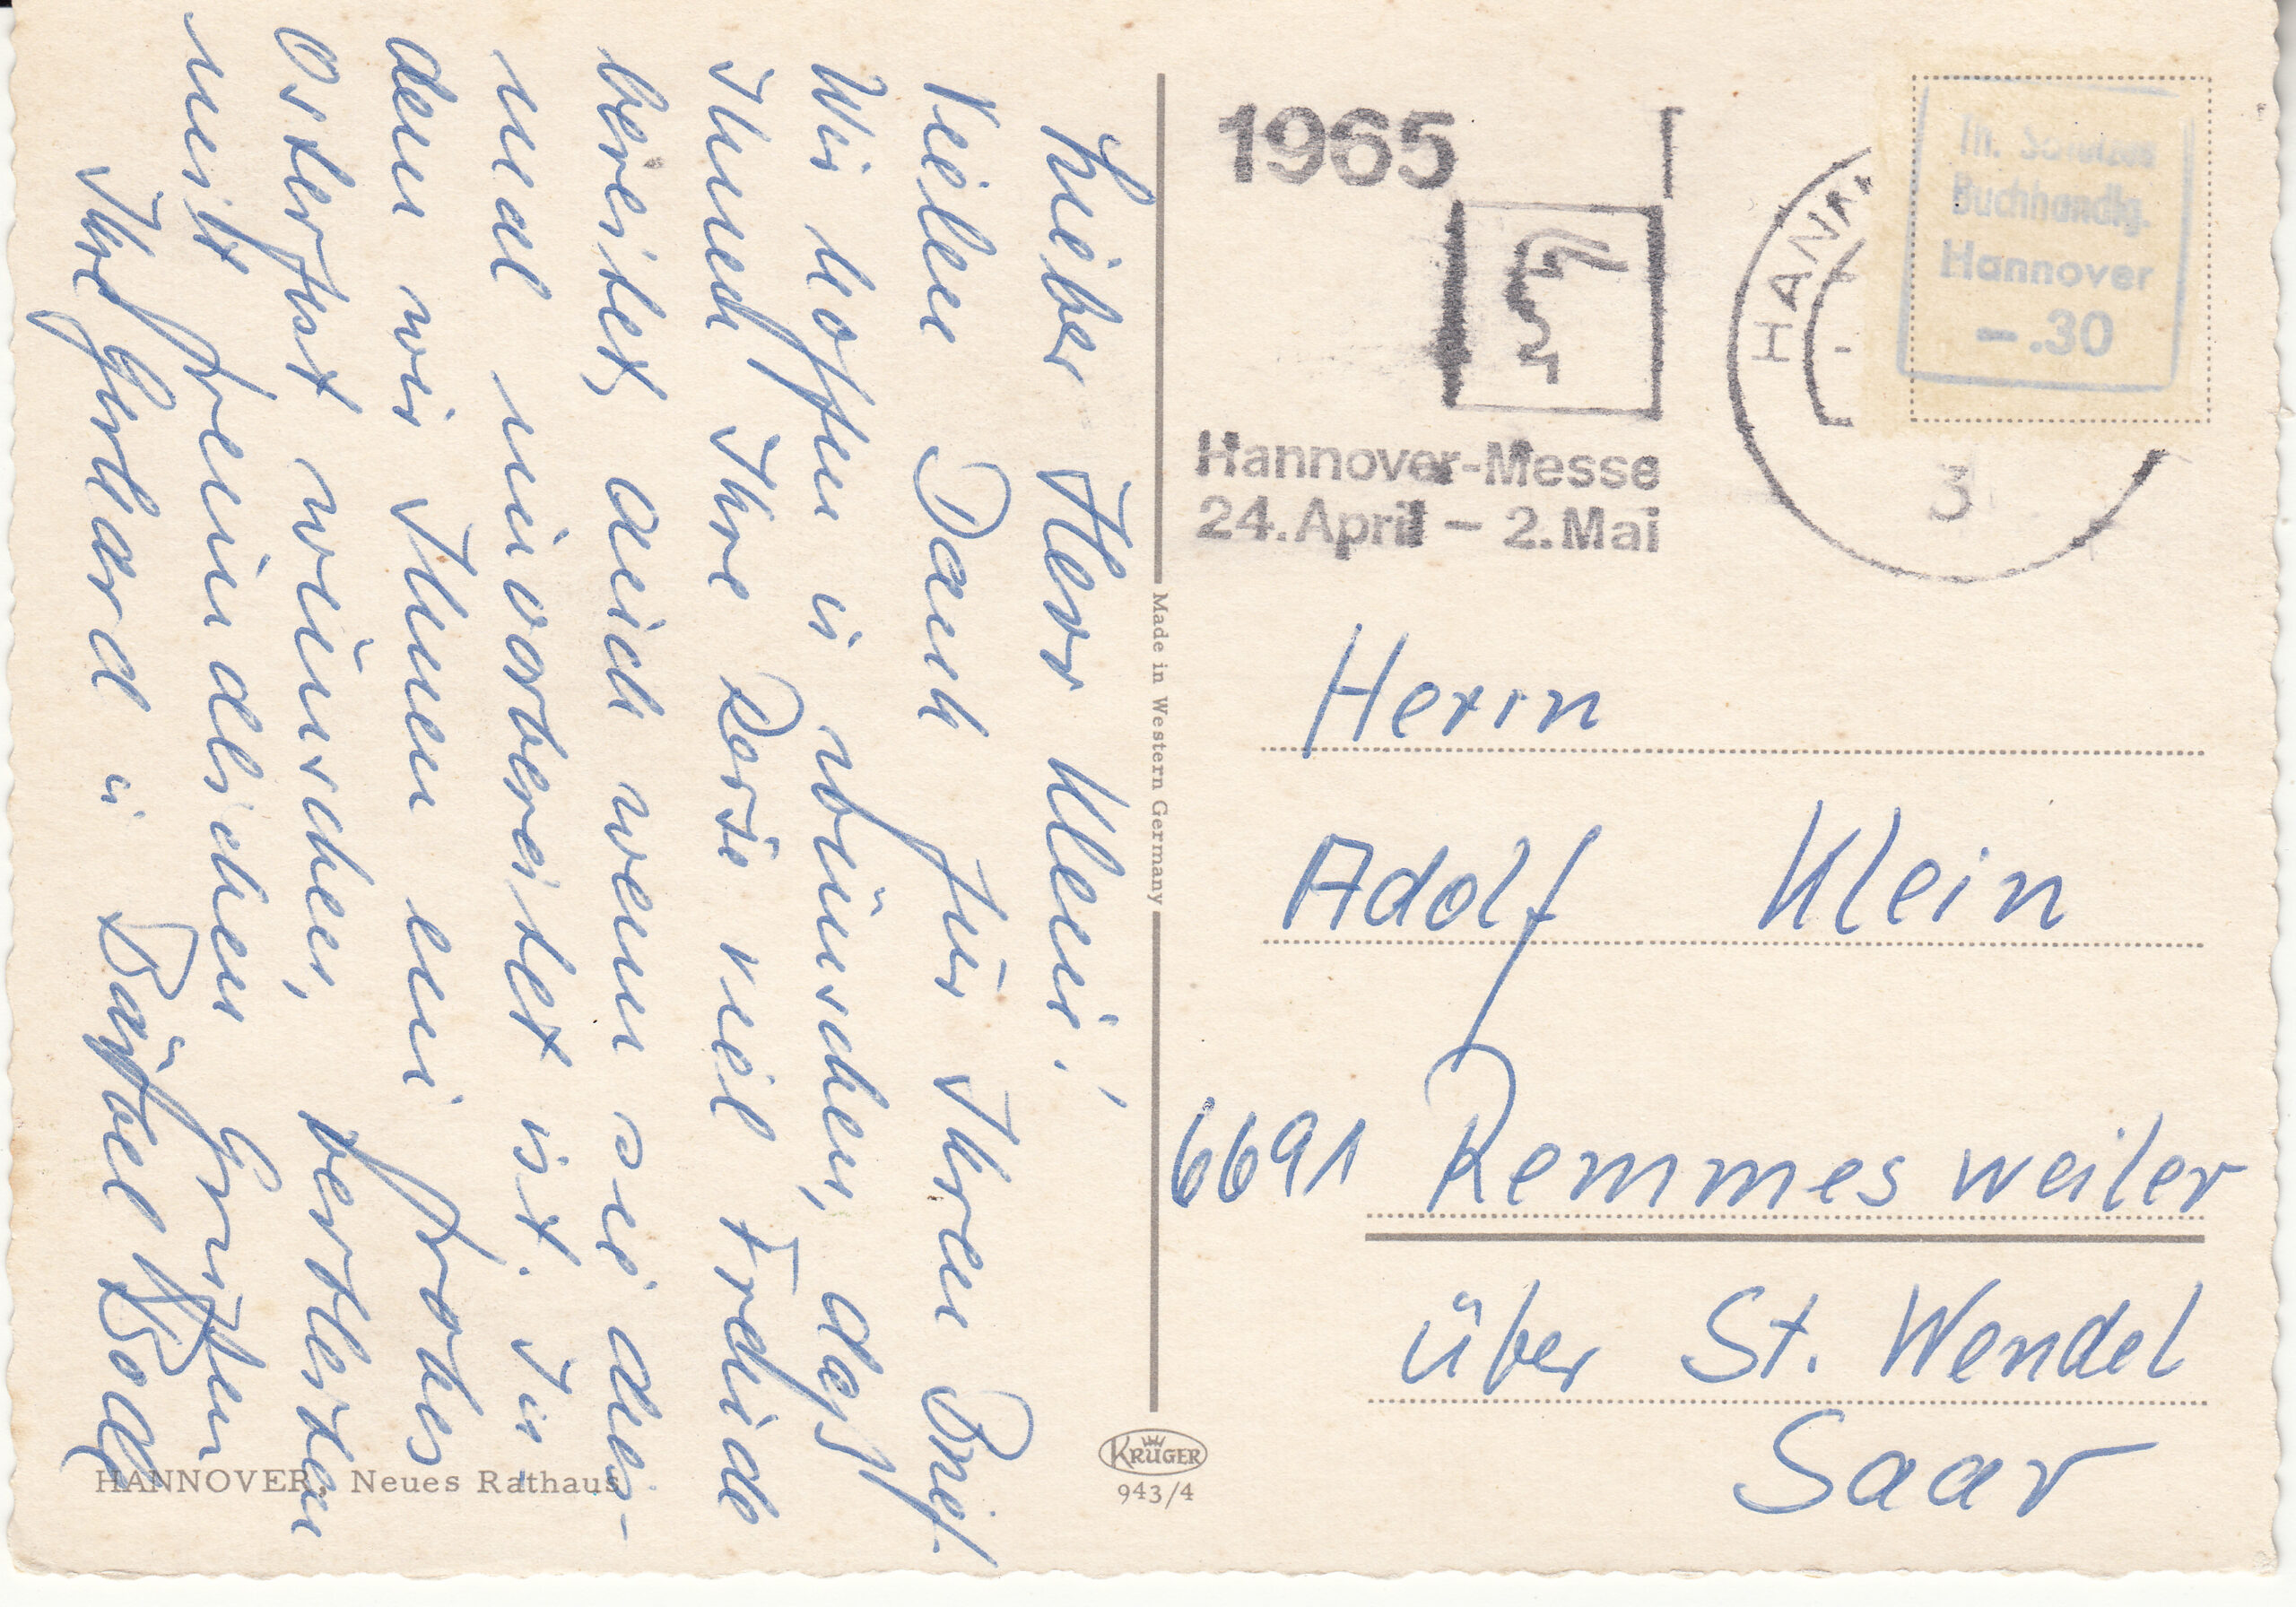 Lieber Herr Klein!
Vielen Dank für Ihren Brief.
Wir hoffen u. wünschen, daß
Ihnen Ihre Rose viel Freude
bereitet, auch wenn sie dies-
mal unvorbereitet ist. In-
dem wir Ihnen ein frohes
Osterfest wünschen, verbleiben
mit freundlichen Grüßen
Ihre Gerhard u. Bärbel Bode
HANNOVER, Neues Rathaus
Made in Western Germany
KRÜGER
943/4
1965
Hannover-Messe
24. April – 2. Mai
HANN
3
Buchhandlg.
Hannover
-.30
Herrn
Adolf Klein
6691 Remmesweiler
über St. Wendel
Saar